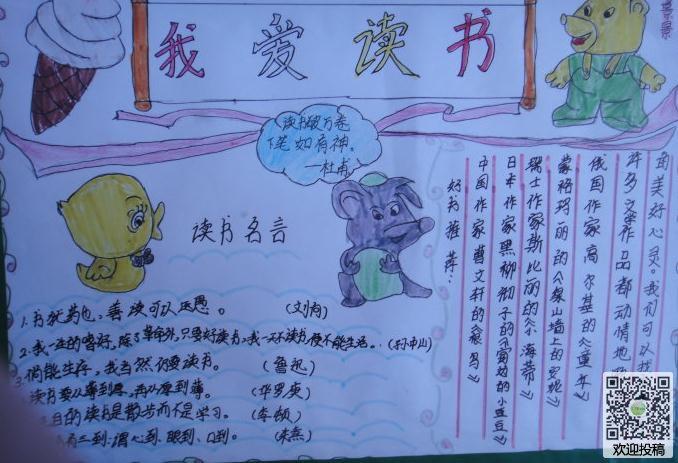 我爱读书
景景
读书破万卷
下笔如有神。
—杜甫
读书名言
1.书犹药也,善读可以医愚。 (刘向)
2.我一生的嗜好,除了革命外,只要好读书,我一天不读书便不能生活。(孙中山)
倘能生存,我当然仍要读书。 (鲁迅)
读书要从薄到厚,再从厚到薄。 (华罗庚)
目的读书是散步而不是学习。 (李顿)
有三到:谓心到、眼到、口到。 (朱熹)
好书推荐:
中国作家曹文轩的《狼鸟》
日本作家黑柳彻子的《窗边的小豆豆》
瑞士作家斯比丽的《小海蒂》
蒙格玛丽的《象山墙上的安妮》
俄国作家高尔基的《童年》
许多著作品都动情地
的美好心灵。我们可以找
欢迎投稿